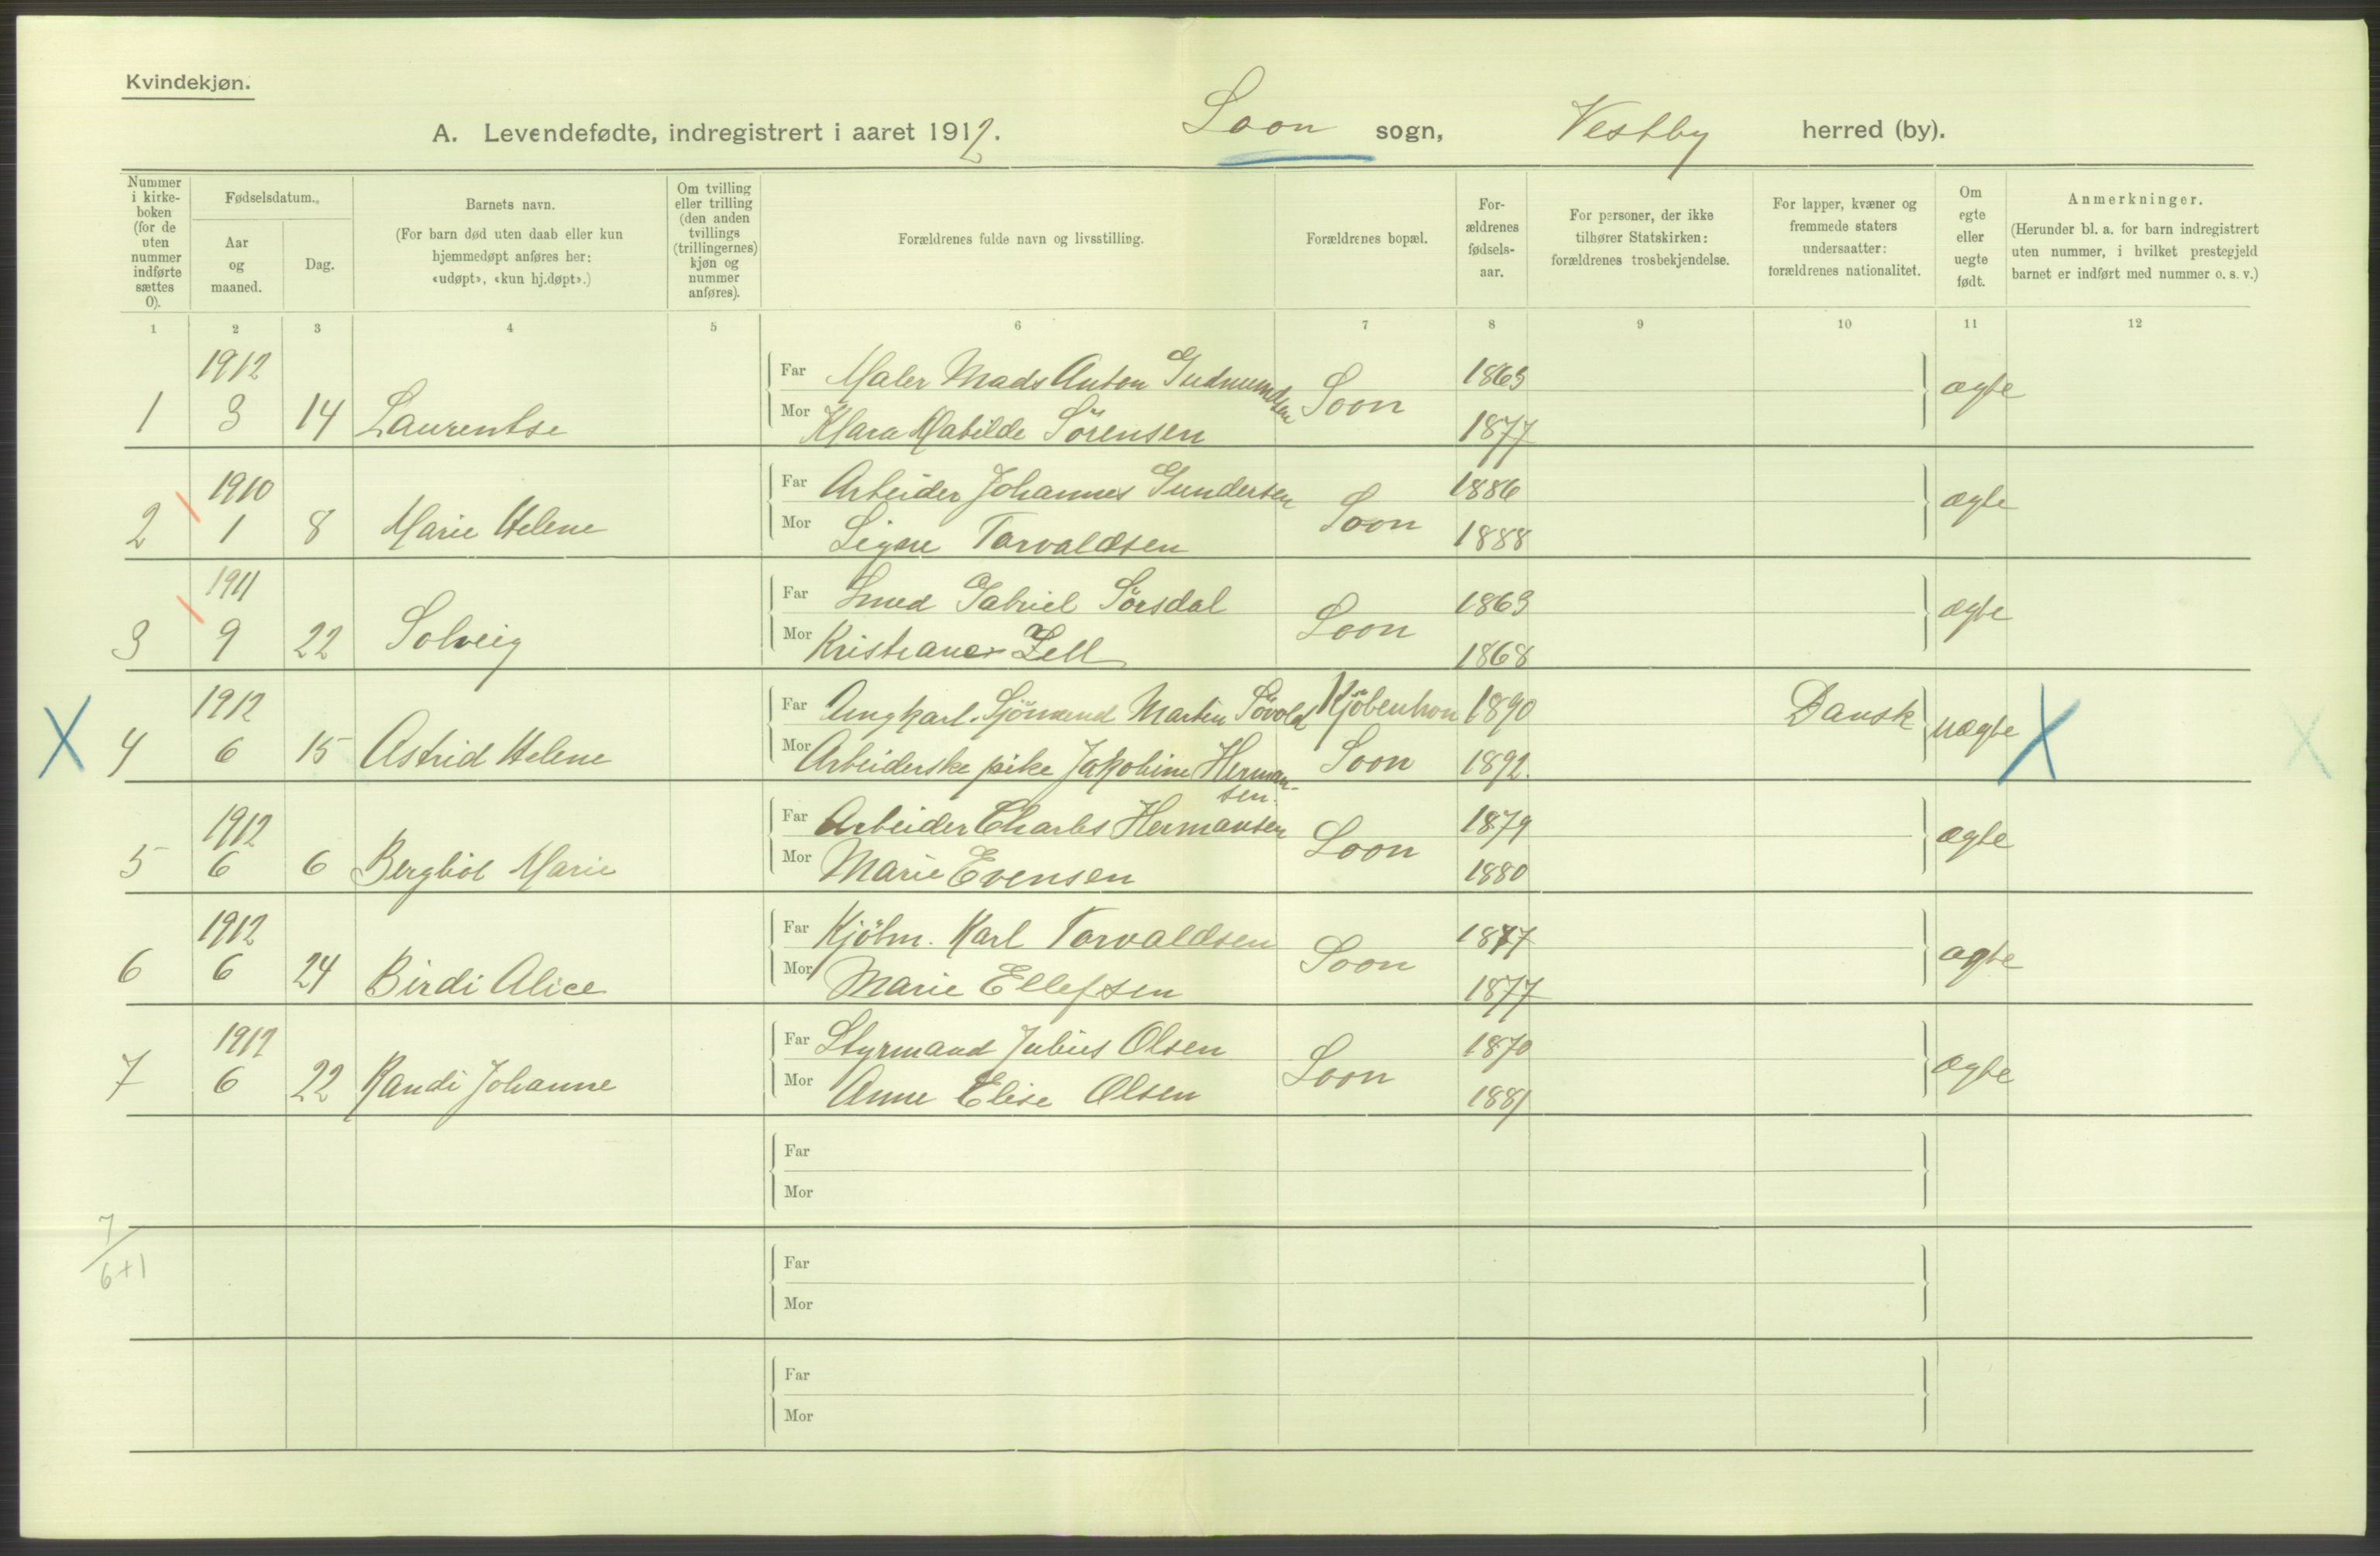 Kvindekjøn.
A. Levendefødte, indregistrert i aaret 1912. Soon sogn, Vestby herred (by).
Nummer i kirke-boken (for de uten nummer indførte sættes 0).
Fødselsdatum.
Aar og maaned.
Dag.
Barnets navn.
(For barn død uten daab eller kun hjemmedøpt anføres her: «udøpt», «kun hj.døpt».)
Om tvilling eller trilling (den anden tvillings (trillingernes) kjøn og nummer anføres).
Forældrenes fulde navn og livsstilling.
Forældrenes bopæl.
For-ældrenes fødsels-aar.
For personer, der ikke tilhører Statskirken: forældrenes trosbekjendelse.
For lapper, kvæner og fremmede staters undersaatter: forældrenes nationalitet.
Om egte eller uegte født.
Anmerkninger.
(Herunder bl. a. for barn indregistrert uten nummer, i hvilket prestegjeld barnet er indført med nummer o. s. v.)
1 2 3 4 5 6 7 8 9 10 11 12
1912 Far Maler Mads Anton Gudmundsen 1863
1 3 14 Laurentse Mor Klara Matilde Sörensen Soon 1877 ægte
1910 Far Arbeider Johannes Gundersen 1886
2 1 8 Marie Helene Mor Signe Torvaldsen Soon 1888 ægte
1911 Far Smed Gabriel Sörsdal 1863
3 9 22 Solveig Mor Kristiane Zell Soon 1868 ægte
1912 Far Ungkarl. Sjömand Martin Sövold Kjöbenhvn 1890 Dansk
X 4 6 15 Astrid Helene Mor Arbeiderske pike Jakobine Herman-sen. Soon 1892. uægte X X
1912 Far Arbeider Charles Hermansen 1879
5 6 6 Bergliot Marie Mor Marie Evensen Soon 1880 ægte
1912 Far Kjöbm. Karl Torvaldsen 1877
6 6 24 Birdi Alice Mor Marie Ellefsen Soon 1877 ægte
1912 Far Styrmand Julius Olsen 1870
7 6 22 Randi Johanne Mor Anne Elise Olsen Soon 1881 ægte
Far
Mor
7
6+1
Far
Mor
Far
Mor